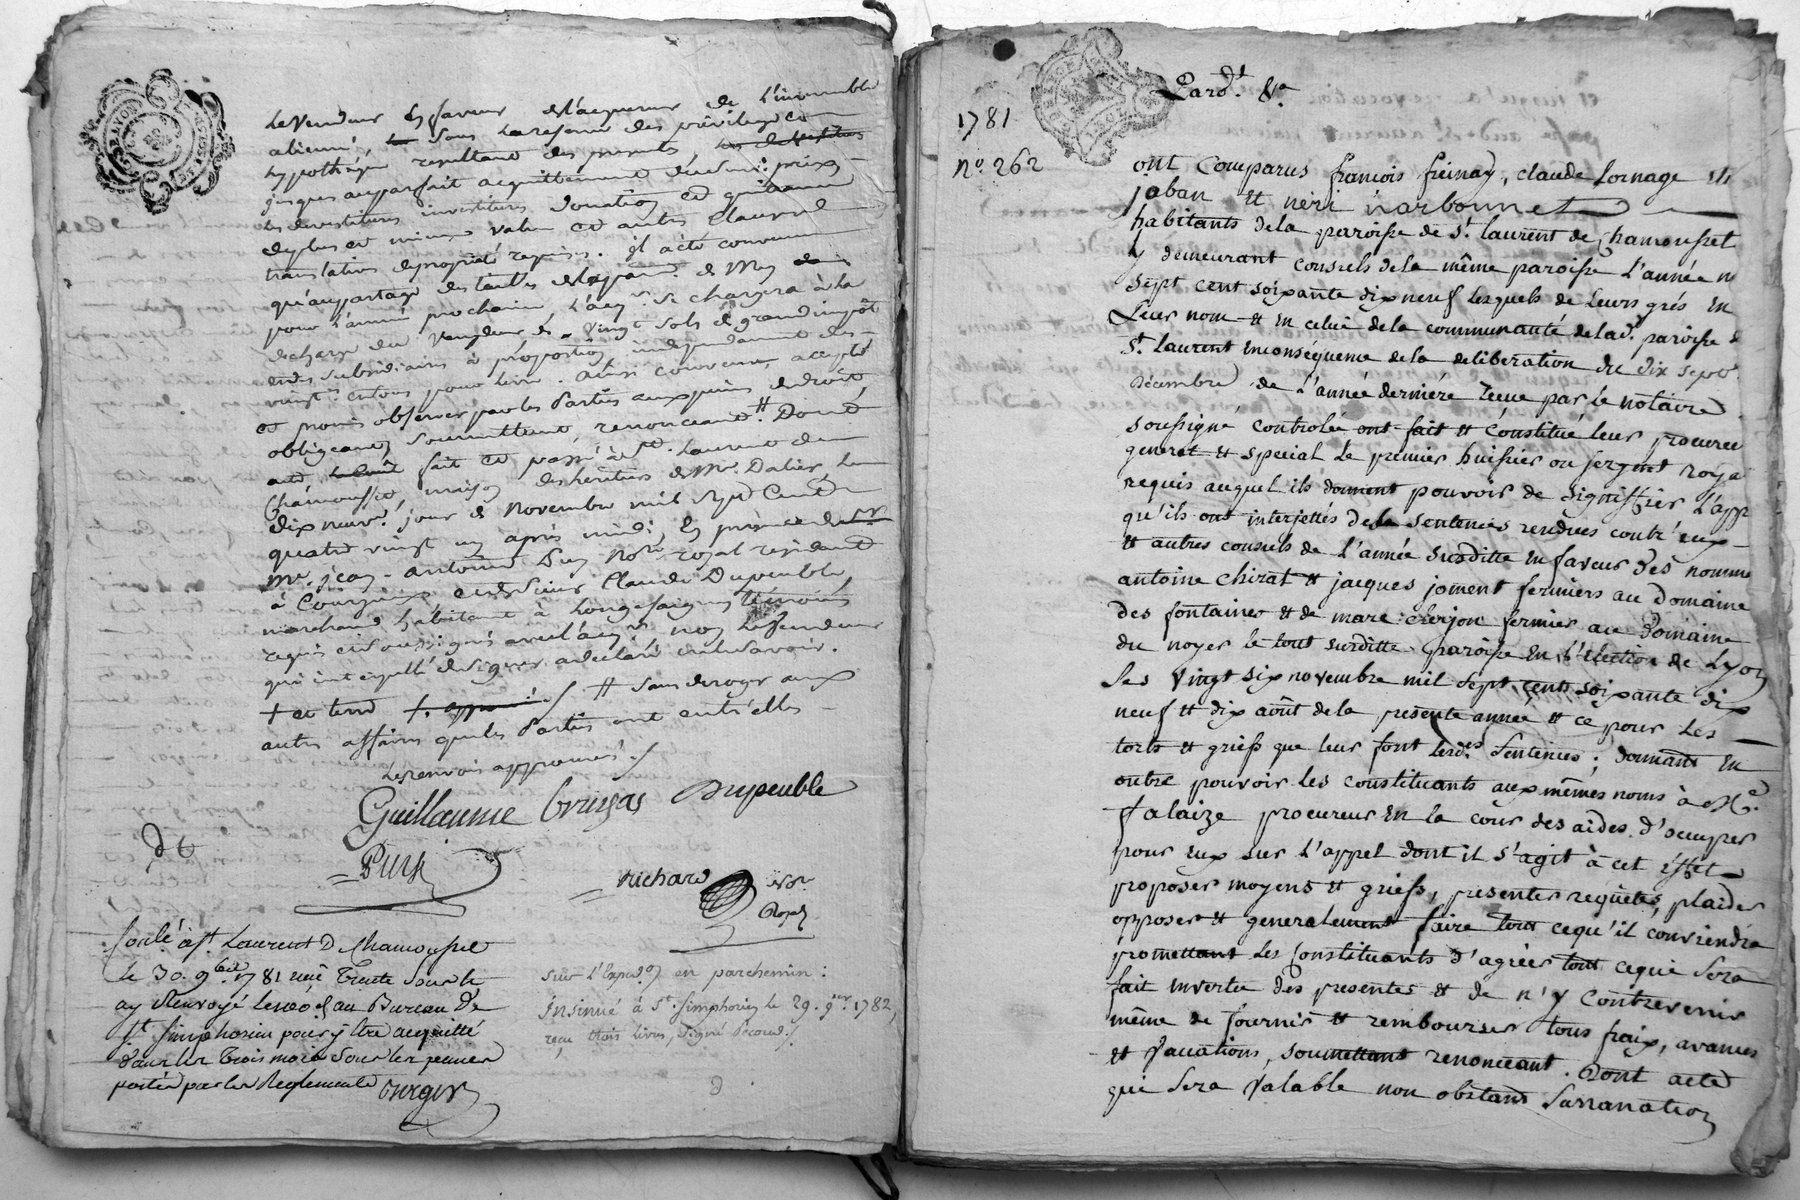 Le Vendeur En faveur de l'acquereur de l'immeuble
aliené, sous la reserve des privilege et
hypothéque resultant des presentes,
jusques au parfait acquittement dudit prix
les devestitures investitures donation et
de plus et mieux value et autres clauses
translatives de propriété requises. il a été convenu
qu'au partage des tailles de la par. de
pour l'année prochaine l'acqr. se chargera à la
decharge du Vendeur de vingt sols de grand impôt
et des subsidiaires à proportion independament des
vingt. ainsi convenu, accepté
et promis observer par les Parties aux peines de droit
obligeant, soumettant, renonceant. # Dont
acte fait et passé à St. Laurent de
Chamousset, maison des heritiers de Mr. Dalier, le
dix neuve. jour de novembre mil sept Cent
quatre vingt un après midi, En présence de
Mr. jean antoine Puy Nore. royal residant
à Courzieux et de sieur Claude Dupeuble
marchand habitant à Longesaigne témoins
requis et soussignés avec l'acqr. non le Vendeur
qui interpellé de signer a declaré ne le savoir.
# sans deroger aux
autres affaires que les Parties ont entr'elles
Les renvois approuvés ./
Guillaume Dupeuble
Puy
richard nore. Royal
à St Laurent D Chamousset
le 30. 9bre 1781 Trente sous
ay Renvoyé au Bureau de
St. Simphorien pour y être acquitté
dans les Trois mois sous les peines
portées par les Reglements
sur l'expedon en parchemin :
Insinué à St. Simphorien le 29. 1782,
reçu trois livres, signé
Pardt. Ve
1781
No. 262
ont Comparus françois freinay, claude Lornage
jaban et neri narbonnet
habitants de la paroisse de St. laurent de Chamousset
y demeurant consuls de la même paroisse L'année m
sept cent soixante dix neuf lesquels de leurs grés en
Leur nom et en celui de la communauté de lad. paroisse d
St. laurent en conséquence de la deliberation du dix sept
Décembre de L'année derniére reçue par le notaire
soussigné controlée ont fait et constitué leur procureu
general et special le premier huissier ou sergent roya
requis auquel ils donnent pouvoir de signiffier l'app
qu'ils ont interjettés de la sentences rendues contr'eux
et autres consuls de l'année susditte en faveur des nomme
antoine chirat et jacques joment fermiers au Domaine
des fontaines et de marc cherjon fermier au Domaine
du noyer le tout surditte paroisse en l'Election de Lyon
Les vingt six novembre mil sept cent soixante dix
neuf et dix août de la presente année et ce pour les
torts et griefs que leur font lesd.es Sentences ; donnant en
outre pouvoir les constituants aux mêmes noms à Me.
falaize procureur en la cour des aides d'occuper
pour eux sur L'appel dont il s'agit à cet effet
proposer moyens et griefs, presenter requêtes, plaider
opposer et generalement faire tout ce qu'il conviendra
promettant les Constituants d'agréer tout ce qui sera
fait en vertu des presentes et de n'y Contrevenir
même de fournir et rembourser tous fraix, avances
et vacations, soumettant renonceant. Dont acte
qui sera valable non obstant surannation